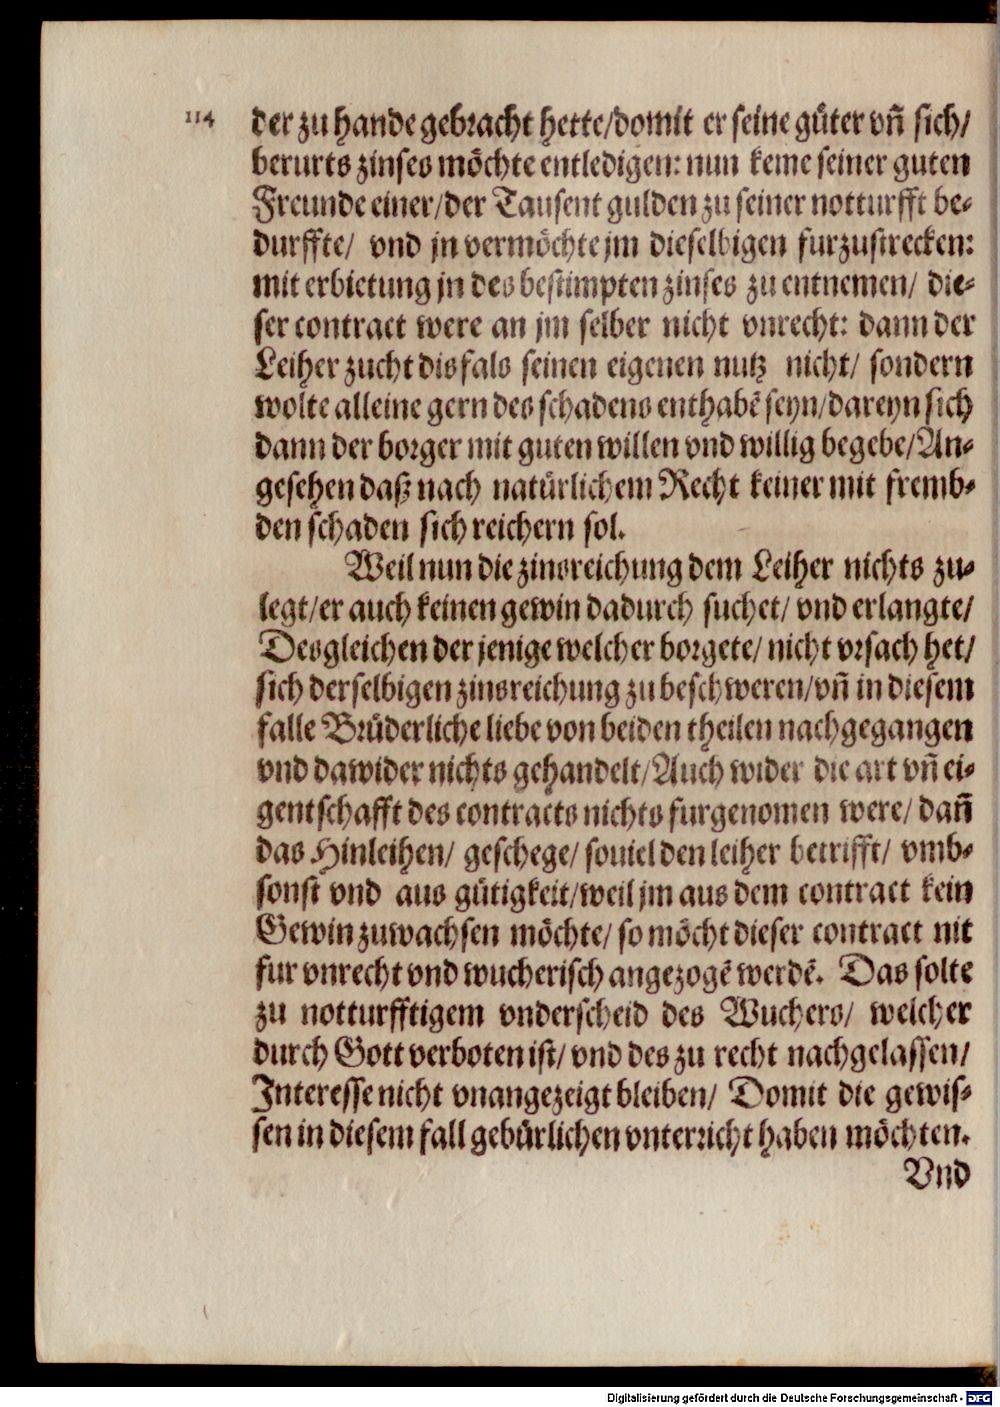 114 der zu hande gebracht hette/domit er seine güter vñ sich/
berurts zinses möchte entledigen: nun keme seiner guten
Freunde einer/der Tausent gulden zu seiner notturfft be-
durffte/ vnd jn vermöchte jm dieselbigen furzustrecken:
mit erbietung jn des bestimpten zinses zu entnemen/ die-
ser contract were an jm selber nicht vnrecht: dann der
Leiher zucht disfals seinen eigenen nutz nicht/ sondern
wolte alleine gern des schadens enthabẽ seyn/dareyn sich
dann der borger mit guten willen vnd willig begebe/An-
gesehen daß nach natürlichem Recht keiner mit fremb-
den schaden sich reichern sol.
Weil nun die zinsreichung dem Leiher nichts zu-
legt/er auch keinen gewin dadurch suchet/ vnd erlangte/
Desgleichen der jenige welcher borgete/ nicht vrsach het/
sich derselbigen zinsreichung zu beschweren/vñ in diesem
falle Brüderliche liebe von beiden theilen nachgegangen
vnd dawider nichts gehandelt/Auch wider die art vñ ei-
gentschafft des contracts nichts furgenomen were/ dañ
das Hinleihen/ geschege/ souiel den leiher betrifft/ vmb-
sonst vnd aus gütigkeit/weil jm aus dem contract kein
Gewin zuwachsen möchte/ so möcht dieser contract nit
fur vnrecht vnd wucherisch angezogẽ werdẽ. Das solte
zu notturfftigem vnderscheid des Wuchers/ welcher
durch Gott verboten ist/ vnd des zu recht nachgelassen/
Interesse nicht vnangezeigt bleiben/ Domit die gewis-
sen in diesem fall gebürlichen vnterricht haben möchten.
Vnd
Digitalisierung gefördert durch die Deutsche Forschungsgemeinschaft - DFG